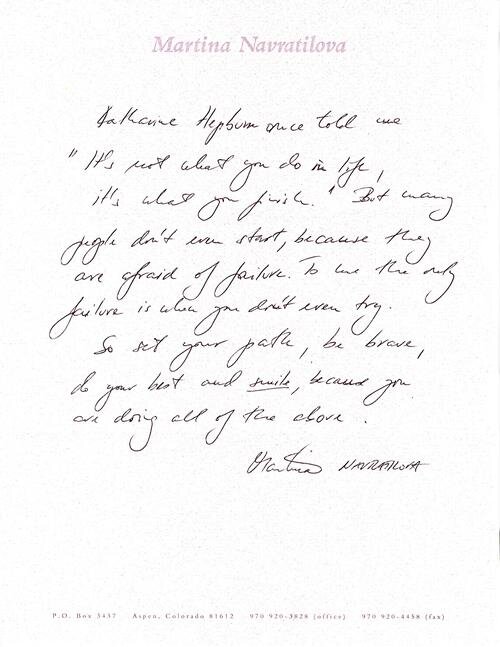 Martina Navratilova
Katharine Hepburn once told me
"It's not what you do in life,
it's what you finish." But many
people don't even start, because they
are afraid of failure. To me the only
failure is when you don't even try.
So set your path, be brave,
do your best and smile, because you
are doing all of the above.
Martina NAVRATILOVA
P.O. Box 3437 Aspen, Colorado 81612 970 920-3828 (office) 970 920-4458 (fax)